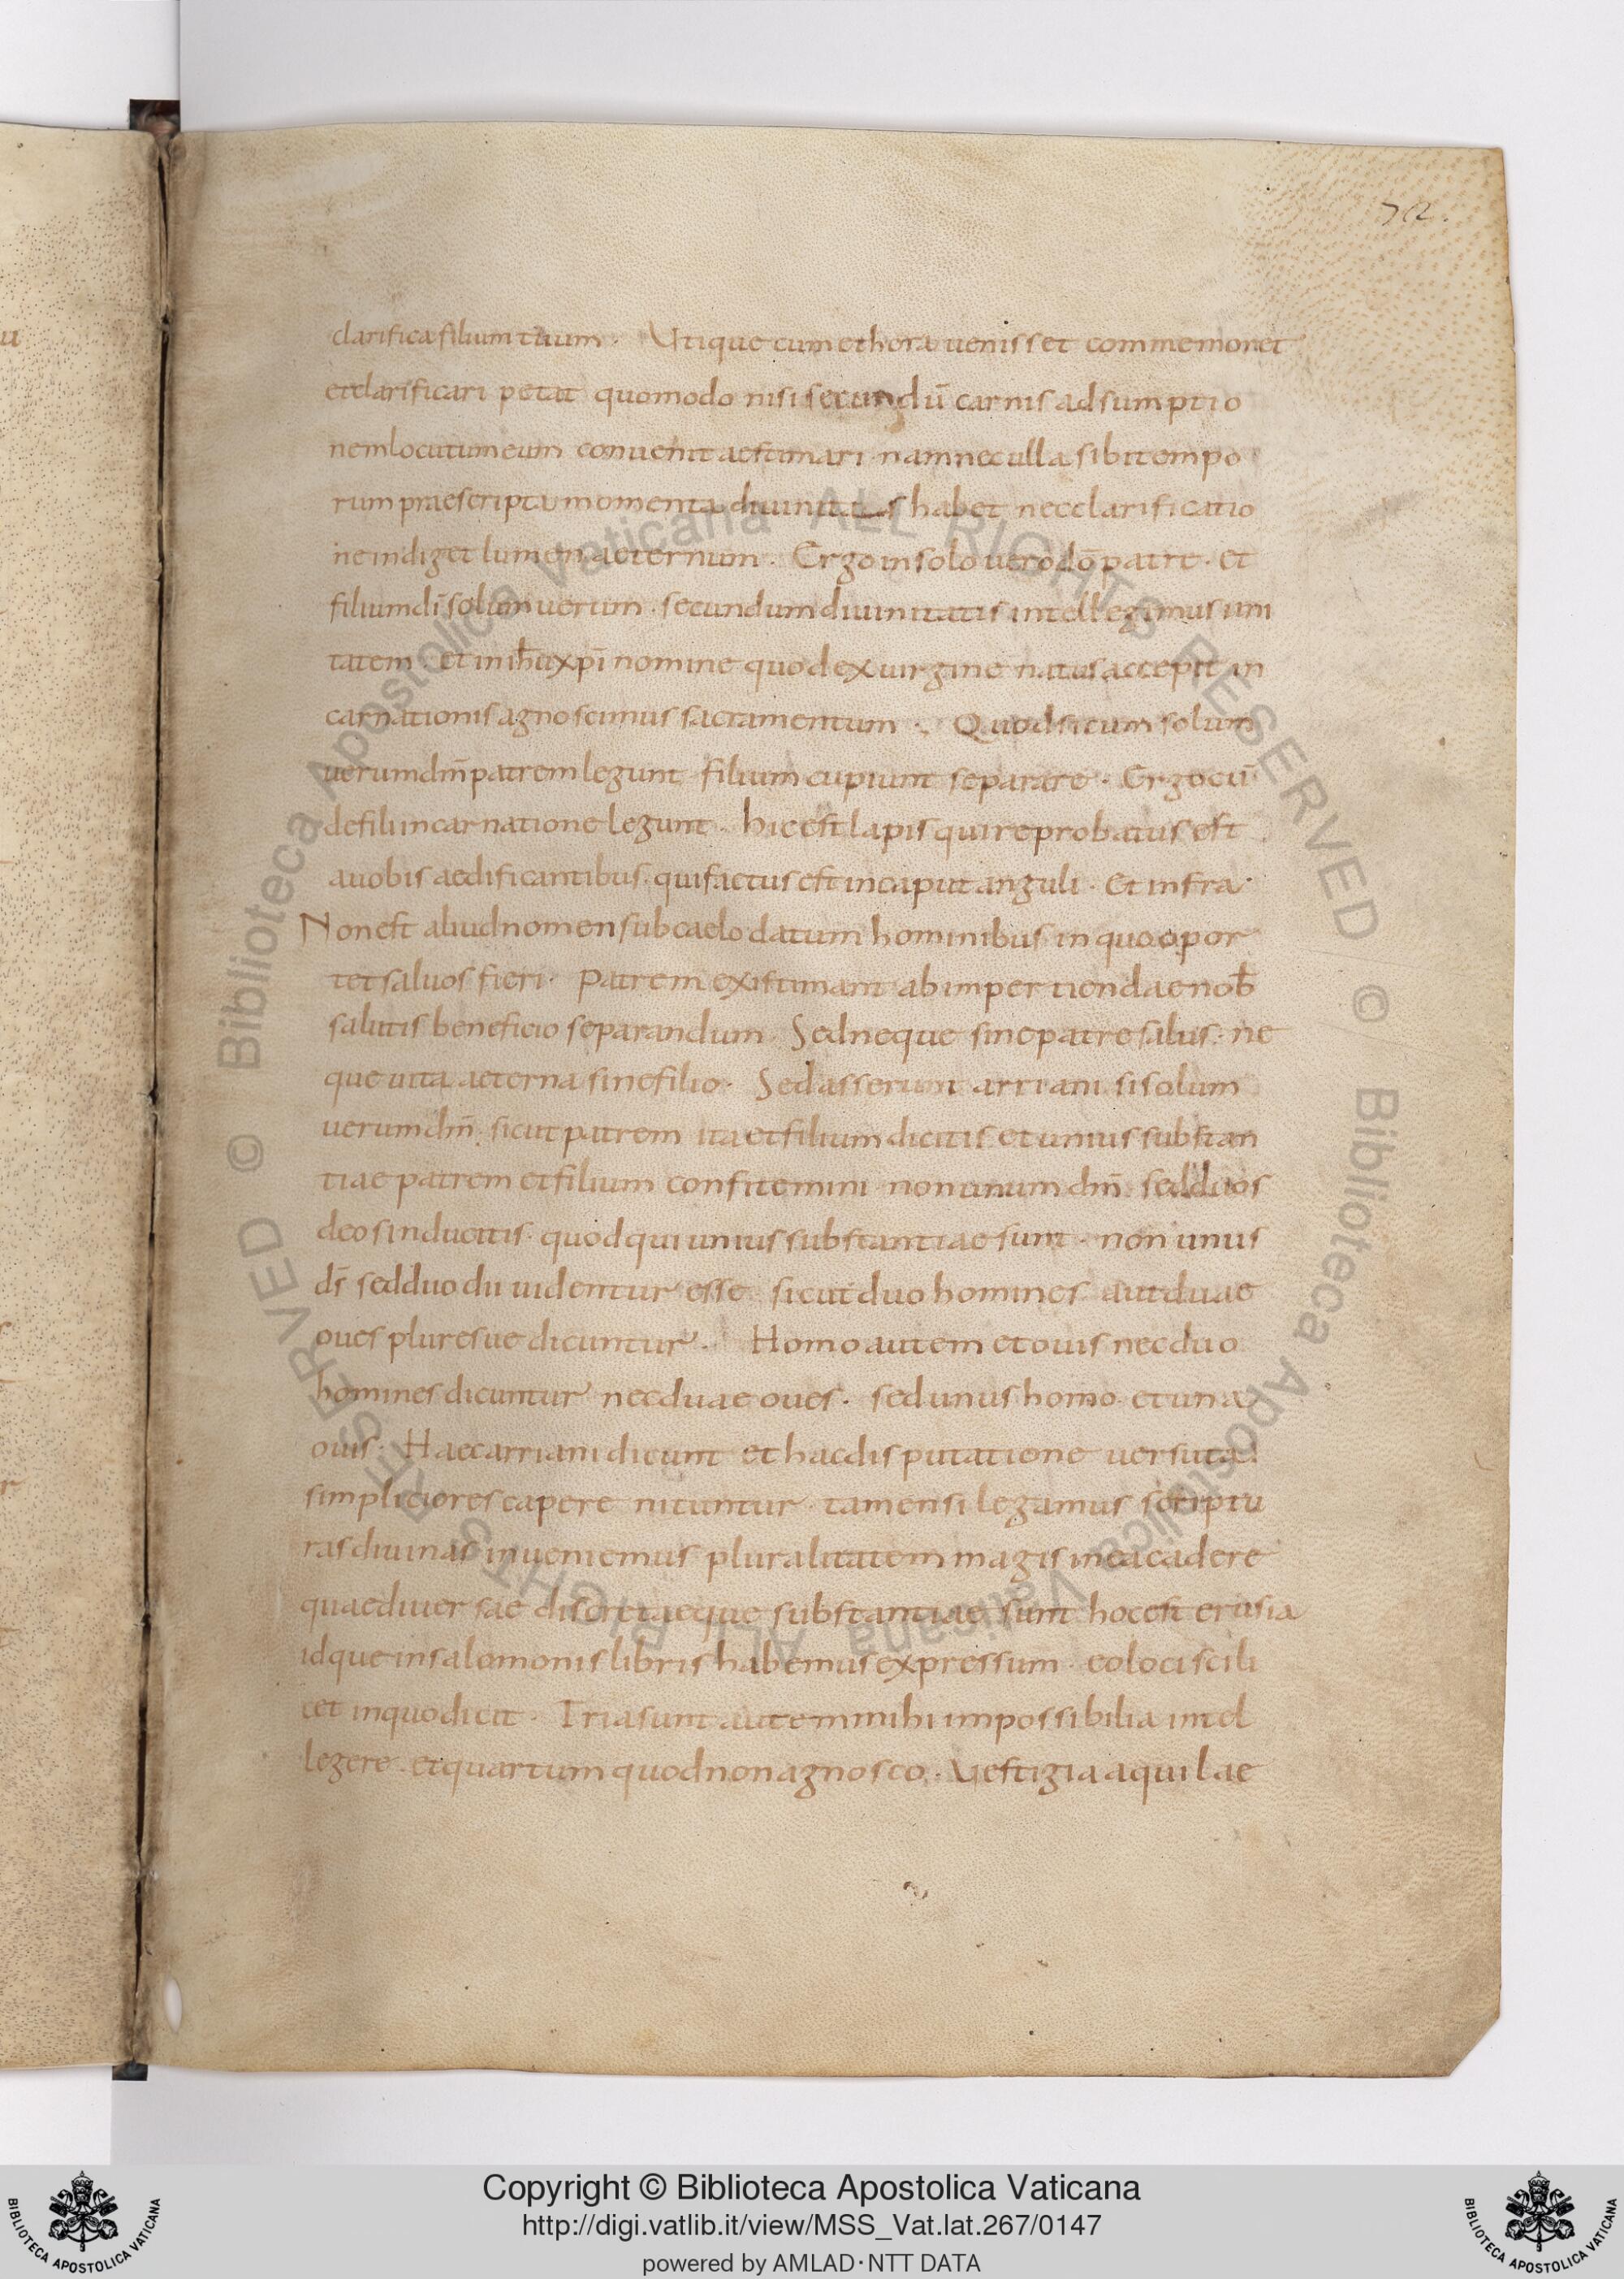 72.
clarifica filium tuum · Utique cum et hora uenisset commemoret
et clarificari petat quomodo nisi secundū carnis adsumptio
nem locutum eum conuenit aestimari · nam nec ulla sibi tempo
rum praescripta momenta diuinitas habet nec clarificatio
ne indiget lumen aeternum · Ergo in solo uero dō patre · et
filium dī solum uerum · secundum diuinitatis intellegimus uni
tatem · et in ih̄u xpī nomine quod ex uirgine natus accepit in
carnationis agnoscimus sacramentum · Quod si cum solum
uerum dm̄ patrem legunt filium cupiunt separare · Ergo cū
de fili incarnatione legunt · hic est lapis qui reprobatus est
a uobis aedificantibus · qui factus est in caput anguli · Et infra ·
Non est aliud nomen sub caelo datum hominibus in quo opor
tet saluos fieri · Patrem existimant ab impertiendae nob̄
salutis beneficio separandum · Sed neque sine patre salus · ne
que uita aeterna sine filio · Sed asserunt arriani si solum
uerum dm̄ · sicut patrem ita et filium dicitis et unius substan
tiae patrem et filium confitemini non unum dm̄ sed duos
deos inducitis · quod qui unius substantiae sunt · non unus
ds̄ sed duo dii uidentur esse sicut duo homines aut duae
oues pluresue dicuntur · Homo autem et ouis nec duo
homines dicuntur nec duae oues · sed unus homo et una
ouis · Haec arriani dicunt et hac disputatione uersuta
simpliciores capere nituntur · tamen si legamus scriptu
ras diuinas inueniemus pluralitatem magis in ea cadere
quae diuersae discretaeque substantiae sunt hoc est erusia
idque in salomonis libris habemus expressum · eo loci scili
cet in quo dicit · Tria sunt autem mihi impossibilia intel
legere · et quartum quod non agnosco · Uestigia aquilae
© Biblioteca Apostolica Vaticana ALL RIGHTS RESERVED © Biblioteca Apostolica Vaticana ALL RIGHTS RESERVED
Copyright © Biblioteca Apostolica Vaticana
http://digi.vatlib.it/view/MSS_Vat.lat.267/0147
powered by AMLAD·NTT DATA
BIBLIOTECA APOSTOLICA VATICANA
BIBLIOTECA APOSTOLICA VATICANA